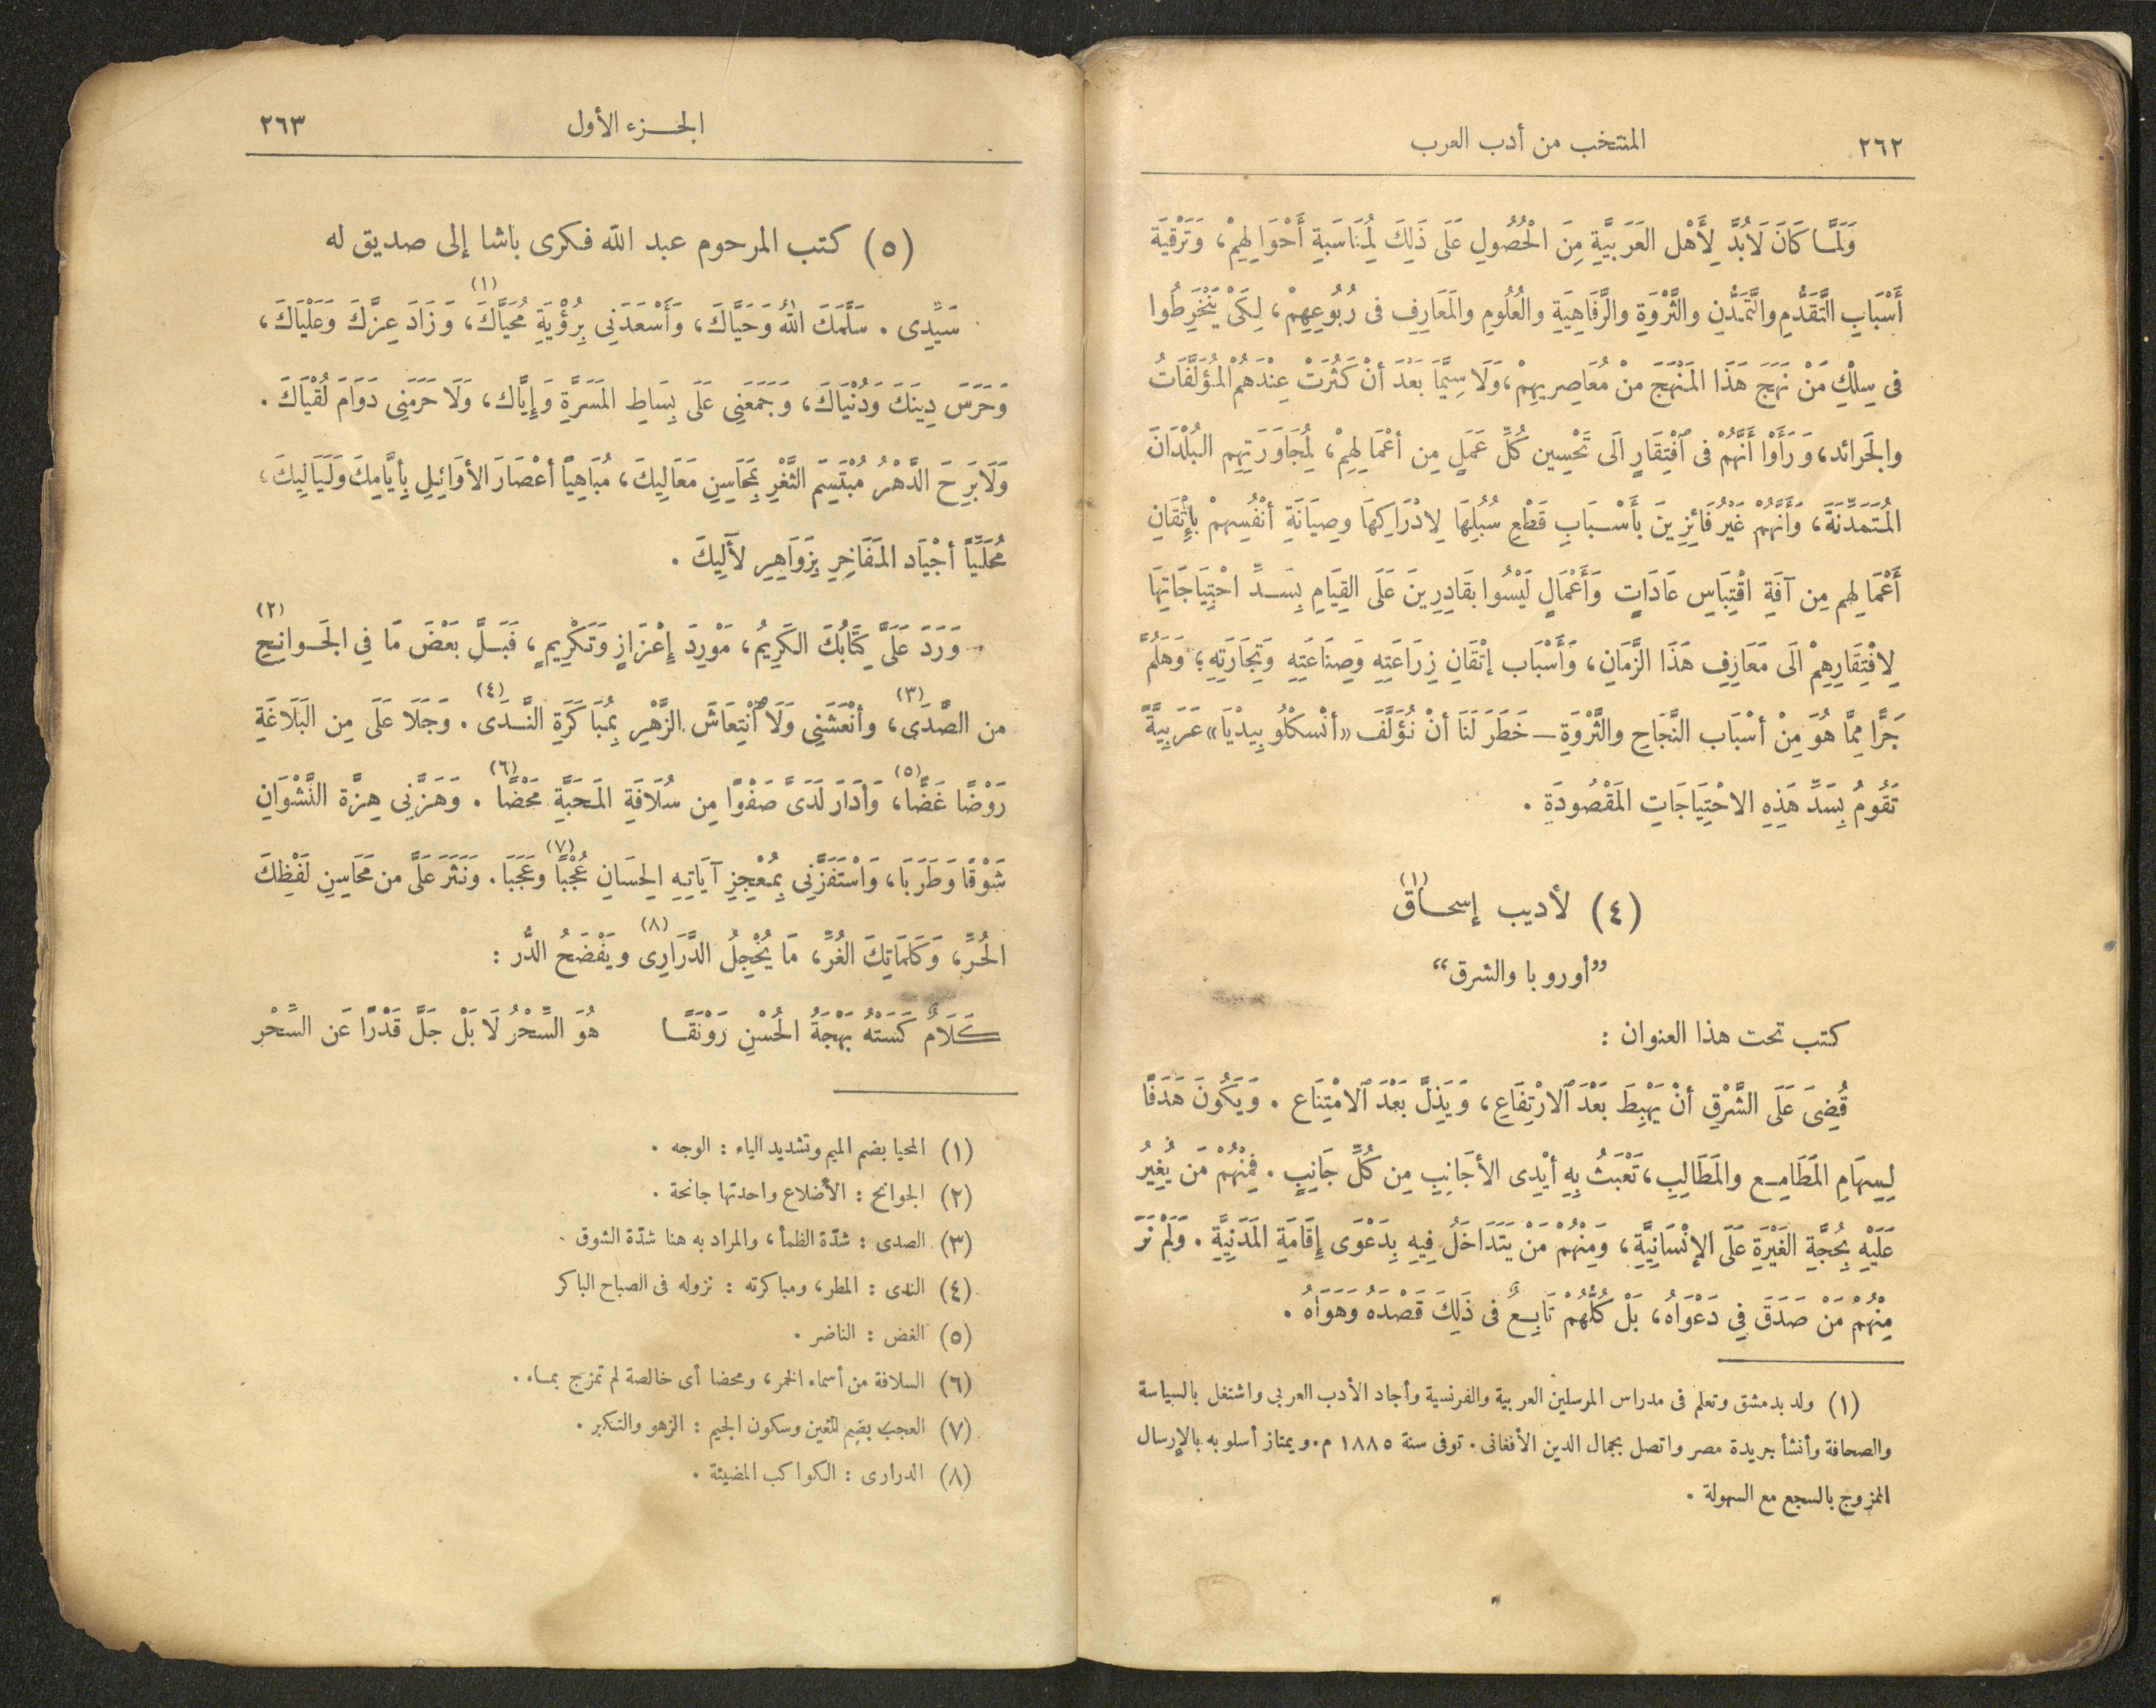 ٢٦٢ المنتخب من أدب العرب
وَلَمَّا كَانَ لَابُدَّ لِأَهْلِ العَرَبيَّةِ مِنَ الْحُصُولِ عَلَى ذَلِكَ لِمُنَاسَبَةِ أَحْوَالِهِمْ، وَتَرْقِيَة
أَسْبَابِ التَّقَدُّمِ والتَّمَدُّنِ والثَّرْوَةِ والرَّفَاهِيَةِ والْعُلُومِ والمَعَارِفِ فى رُبُوعِهِمْ، لِكَىْ يَنْخَرِطُوا
فى سِلْكِ مَنْ نَهَجَ هَذَا المَنْهَجَ مِنْ مُعَاصِريهِمْ، وَلَا سِيَّمَا بَعْدَ أنْ كَثُرَتْ عِنْدَهُمْ المُؤَلَّفَاتُ
والجَرائد، وَرَأَوْا أَنَّهُمْ فى ٱفْتِقَارٍ الَى تَحْسِين كُلِّ عَمَلٍ مِن أعْمَالِهِمْ، لِمُجَاوَرَتِهِم البُلْدَانَ
المُتَمَدِّنَةَ، وَأَنَّهُمْ غَيْرُ فَائِزِينَ بأَسْبَابِ قَطْعِ سُبُلِهَا لِادْرَاكِهَا وصِيَانَةِ أنْفُسِهِمْ بِإتْقَانِ
أَعْمَالِهِم مِن آفَةِ اقْتِبَاسِ عَادَاتٍ وَأَعْمَالٍ لَيْسُوا بقَادِرِينَ عَلَى القِيَامِ بِسَدِّ احْتِيَاجَاتِهَا
لِافْتِقَارِهِمْ الَى مَعَارِفِ هَذَا الزَّمَانِ، وَأَسْبَاب إتْقَانِ زِرَاعَتِهِ وَصِنَاعَتِهِ وَتِجَارَتِهِ؛ وَهَلُمَّ
جَرًّا مِمَّا هُوَ مِنْ أسْبَاب النَّجَاحِ والثَّرْوَةِ — خَطَرَ لَنَا أنْ نُؤَلَّفَ «أنْسكْلُوبِيدْيَا» عَرَبِيَّةً
تَقُومُ بِسَدِّ هَذِهِ الاحْتِيَاجَاتِ المَقْصُودَةِ .
(٤) لأديب إسحاق (١)
”أوروبا والشرق“
كتب تحت هذا العنوان :
قُضِىَ عَلَى الشَّرْقِ أنْ يَهْبِطَ بَعْدَ ٱلارْتِفَاعِ، وَيَذِلَّ بَعْدَ ٱلامْتِنَاع . وَيَكُونَ هَدَفًا
لِسِهَامِ المَطَامِع والمَطَالِبِ، تَعْبَثُ بِهِ أيْدِى الأجَانِبِ مِن كُلِّ جَانِبٍ . فَمِنْهُمْ مَن يُغِيرُ
عَلَيْهِ بِحُجَّةِ الغَيْرَةِ عَلَى الإنْسَانِيَّةِ، وَمِنْهُمْ مَنْ يَتَدَاخَلُ فِيهِ بِدَعْوَى إقَامَةِ المَدَنِيَّةِ . وَلَمْ نَرَ
مِنْهُمْ مَنْ صَدَقَ فِي دَعْوَاهُ، بَلْ كُلُّهُمْ تَابِعٌ فى ذَلِكَ قَصْدَهُ وَهَوَاهُ .
(١) ولد بدمشق وتعلم فى مدراس المرسلين العربية والفرنسية وأجاد الأدب العربى واشتغل بالسياسة
والصحافة وأنشأ جريدة مصر واتصل بجمال الدين الأفغانى . توفى سنة ١٨٨٥ م. ويمتاز أسلوبه بالإرسال
المزوج بالسجع مع السهولة .
الجزء الأول ٢٦٣
(٥) كتب المرحوم عبد الله فكرى باشا إلى صديق له
سَيِّدِى . سَلَّمَكَ اللهُ وَحَيَّاكَ، وَأَسْعَدَنِى بِرُؤْيَةِ مُحَيَّاكَ (١)، وَزَادَ عِزَّكَ وَعَلْيَاكَ،
وَحَرَسَ دِينَكَ وَدُنْيَاكَ، وَجَمَعَنِى عَلَى بِسَاطِ المَسَرَّةِ وَإيَّاك، وَلَا حَرَمَنِى دَوَامَ لُقْيَاكَ .
وَلَا بَرِحَ الدَّهْرُ مُبْتَسِمَ الثَّغْرِ بِمَحَاسِنِ مَعَالِيكَ، مُبَاهِيًا أعْصَارَ الأوَائِلِ بِأيَّامِكَ وَلَيَالِيكَ،
مُحَلِّيًا أجْيَاد المَفَاخِرِ بِزَوَاهِرِ لآلِيكَ .
وَرَدَ عَلَىَّ كِتَابُكَ الكَرِيمُ، مَوْرِدَ إعْزَازٍ وَتَكْرِيمٍ، فَبَلَّ بَعْضَ مَا فِي الجَوانِحِ (٢)
من الصَّدَى (٣)، وأنْعَشَنِى وَلَا ٱنْتِعَاشَ الزَّهْرِ بِمُبَاكَرَةِ النَّدَى (٤) . وَجَلَا عَلَى مِن البَلَاغَةِ
رَوْضًا غَضًّا (٥)، وَأدَارَ لَدَىَّ صَفْوًا مِن سُلَافَةِ المَحَبَّةِ مَحْضًا (٦) . وَهَزَّنِى هِزَّة النَّشْوَانِ
شَوْقًا وَطَرَبَا، وَاسْتَفَزَّنِى بِمُعْجِزِ آيَاتِهِ الحِسَانِ عُجْبًا (٧) وعَجَبَا. وَنَثَرَ عَلَىَّ من مَحَاسِنِ لَفْظِكَ
الحُرِّ، وَكَلِمَاتِكَ الغُرِّ، مَا يُخْجِلُ الدَّرَارِى (٨) ويَفْضَحُ الدُّر :
كَلَامٌ كَسَتْهُ بَهْجَةُ الحُسْنِ رَوْنَقًا هُوَ السِّحْرُ لَا بَلْ جَلَّ قَدْرًا عَن السِّحْرِ
(١) المحيا بضم الميم وتشديد الياء : الوجه .
(٢) الجوانح : الأضلاع واحدتها جانحة .
(٣) الصدى : شدّة الظمأ، والمراد به هنا شدّة الشوق .
(٤) الندى : المطر، ومباكرته : نزوله فى الصباح الباكر
(٥) الغض : الناضر .
(٦) السلافة من أسماء الخمر، ومحضا أى خالصة لم تمزج بماء .
(٧) العجب بضم العين وسكون الجيم : الزهو والتكبر .
(٨) الدرارى : الكواكب المضيئة .